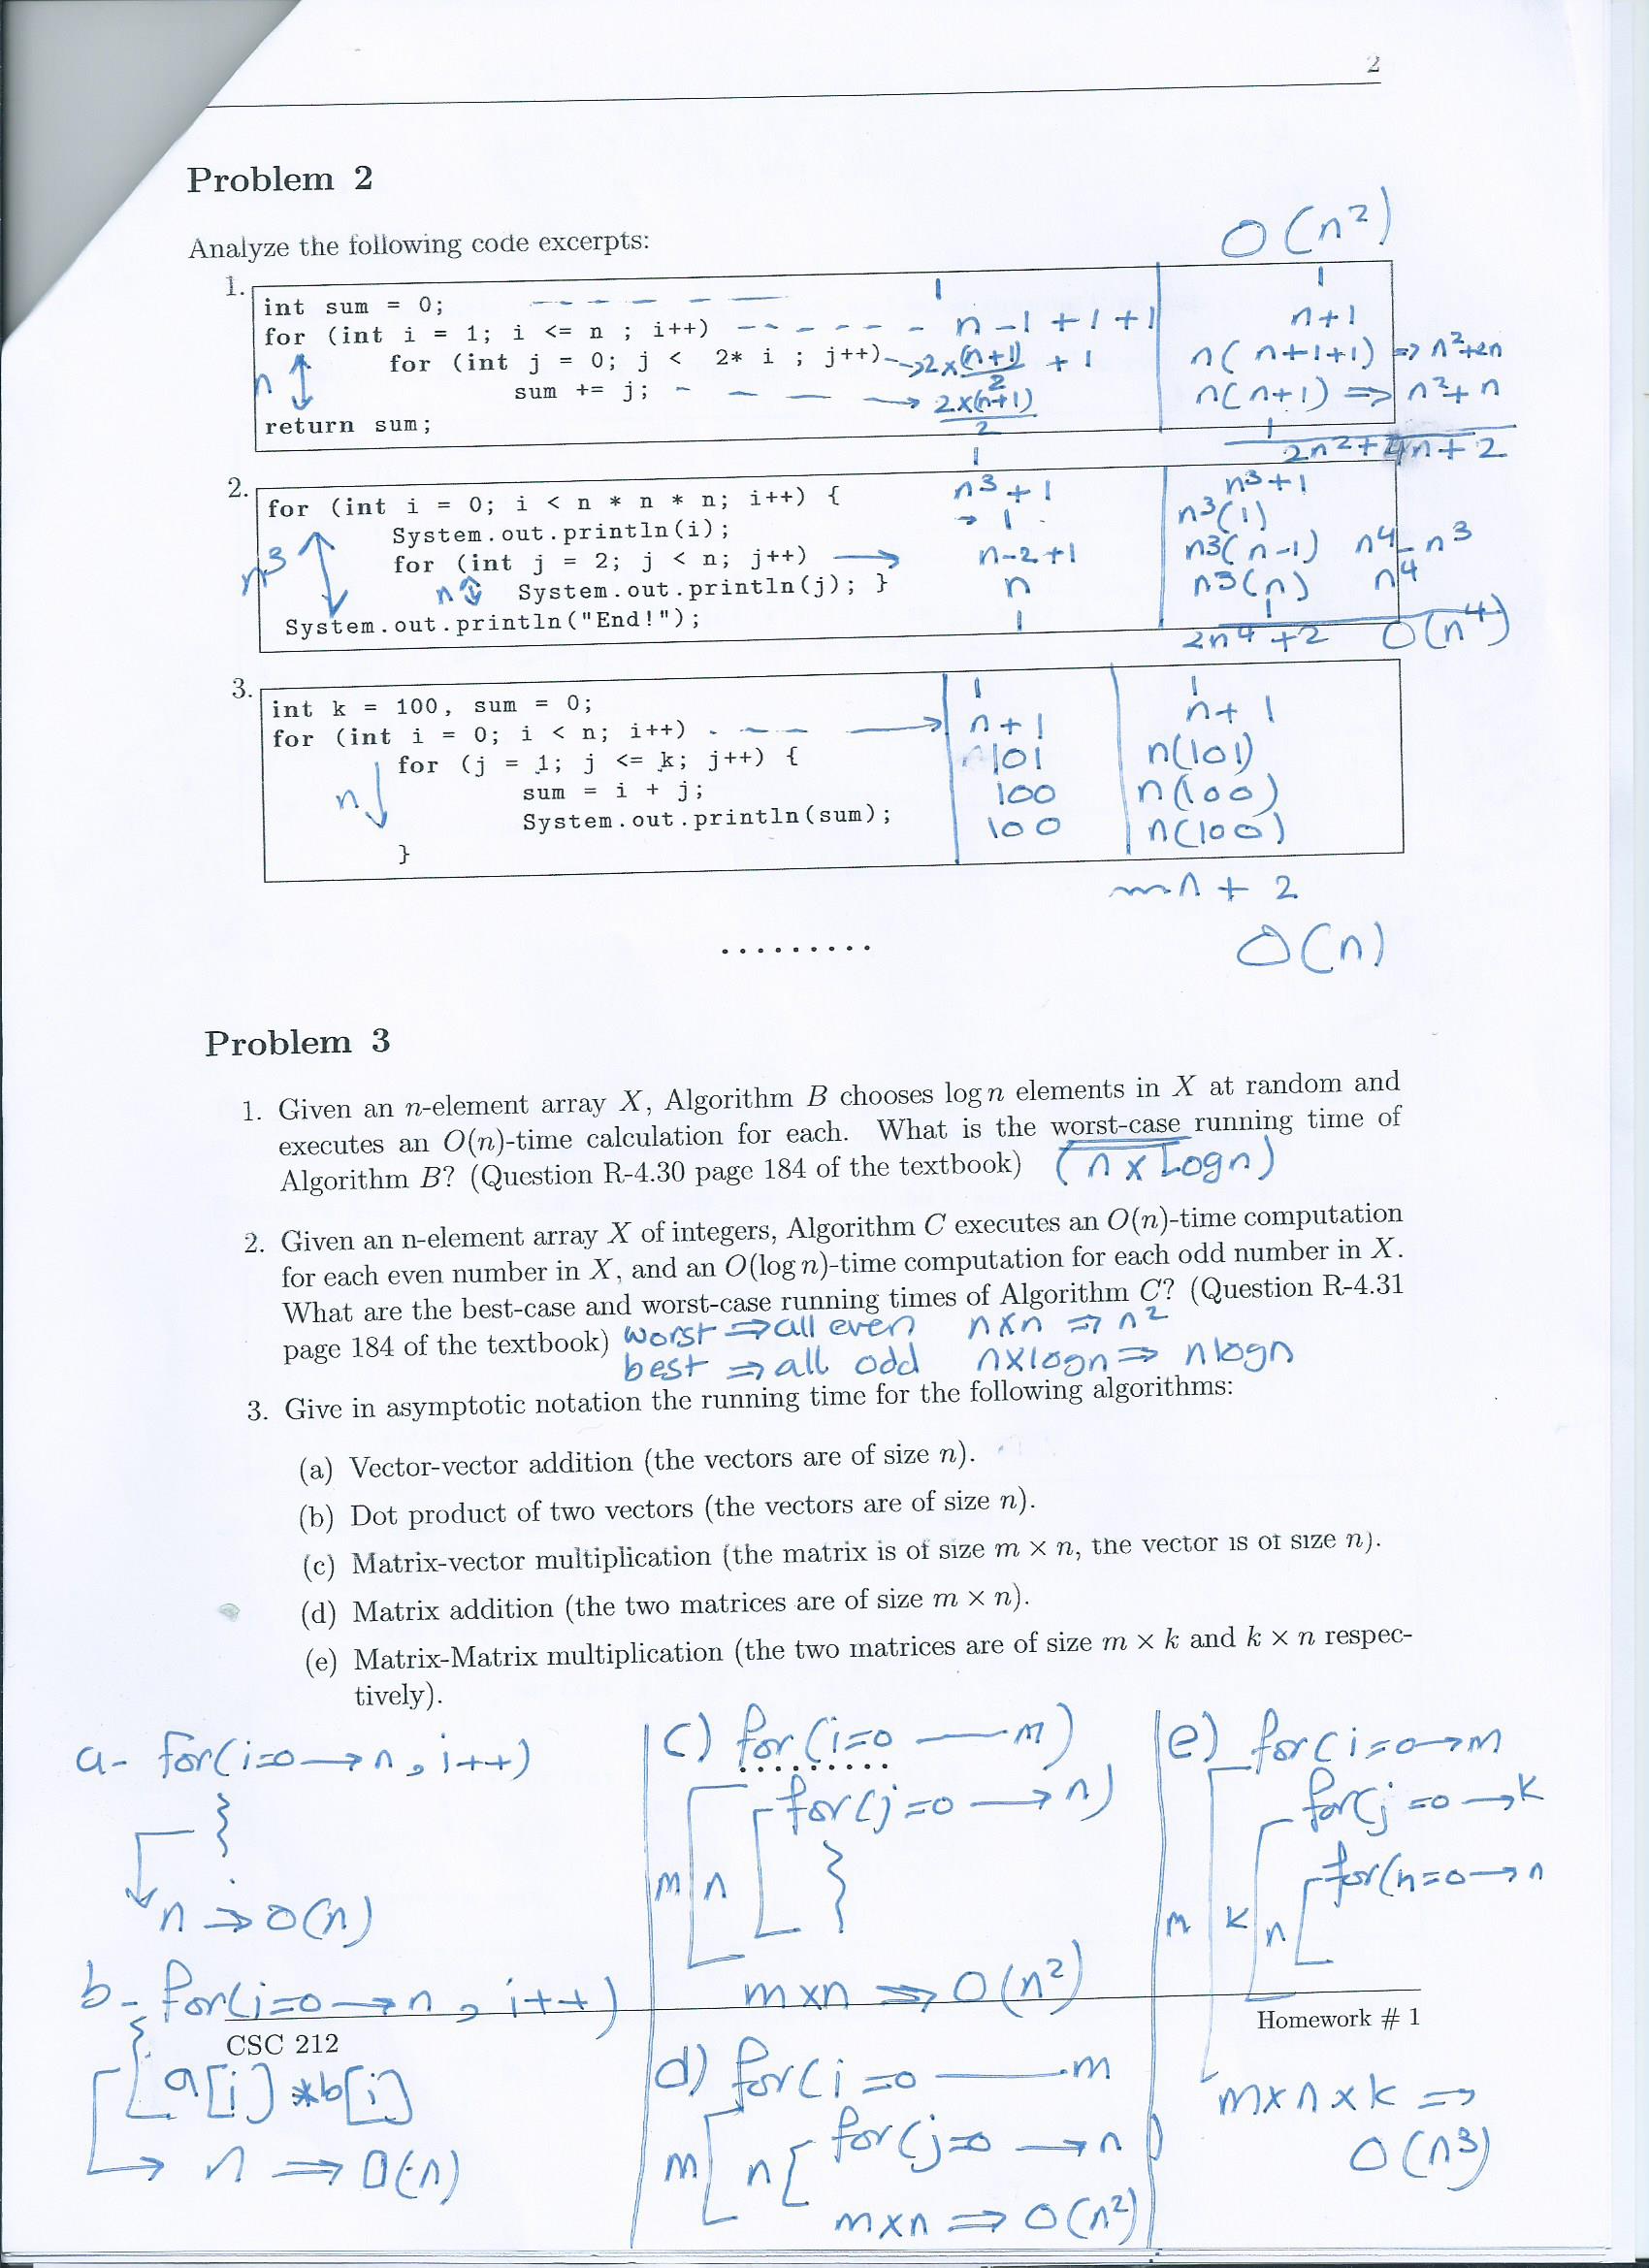 2
Problem 2
O(n²)
Analyze the following code excerpts:
1.
int sum = 0; 1 1
for (int i = 1; i <= n ; i++) n-1+1+1 n+1
n for (int j = 0; j < 2* i ; j++) → 2×(n+1)/2 + 1 n(n+1+1) => n²+2n
sum += j; → 2×(n+1)/2 n(n+1) => n²+n
return sum; 1 1
2n²+4n+2
2.
for (int i = 0; i < n * n * n; i++) { n³+1 n³+1
System.out.println(i); → 1 n³(1)
n³ for (int j = 2; j < n; j++) → n-2+1 n³(n-1) n⁴-n³
n System.out.println(j); } n n³(n) n⁴
System.out.println("End!"); 1 1
2n⁴+2 O(n⁴)
3.
int k = 100, sum = 0; 1 1
for (int i = 0; i < n; i++) → n+1 n+1
for (j = 1; j <= k; j++) { 101 n(101)
n sum = i + j; 100 n(100)
System.out.println(sum); 100 n(100)
}
n + 2
.........
O(n)
Problem 3
1. Given an n-element array X, Algorithm B chooses log n elements in X at random and
executes an O(n)-time calculation for each. What is the worst-case running time of
Algorithm B? (Question R-4.30 page 184 of the textbook) (n x Logn)
2. Given an n-element array X of integers, Algorithm C executes an O(n)-time computation
for each even number in X, and an O(log n)-time computation for each odd number in X.
What are the best-case and worst-case running times of Algorithm C? (Question R-4.31
page 184 of the textbook) worst => all even nxn => n²
best => all odd nxlogn => nlogn
3. Give in asymptotic notation the running time for the following algorithms:
(a) Vector-vector addition (the vectors are of size n).
(b) Dot product of two vectors (the vectors are of size n).
(c) Matrix-vector multiplication (the matrix is of size m × n, the vector is of size n).
(d) Matrix addition (the two matrices are of size m × n).
(e) Matrix-Matrix multiplication (the two matrices are of size m × k and k × n respec-
tively).
a- for(i=0→n, i++)
n => O(n)
b- for(i=0→n, i++)
a[i]*b[i]
→ n => O(n)
c) for(i=0 — m)
.........
for(j=0 → n)
m n
mxn => O(n²)
d) for(i=0 — m
for(j=0 → n)
m n
mxn => O(n²)
e) for(i=0→m
for(j=0→k
for(n=0→n
m k n
mxnxk =>
O(n³)
CSC 212
Homework # 1